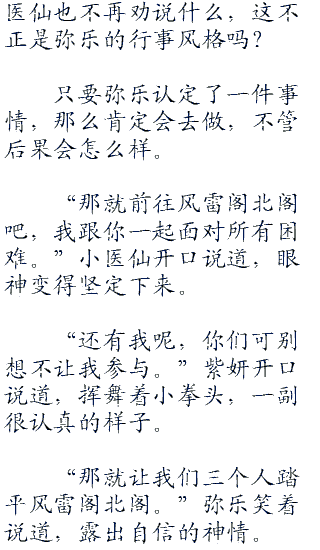 医仙也不再劝说什么，这不
正是弥乐的行事风格吗？
只要弥乐认定了一件事
情，那么肯定会去做，不管
后果会怎么样。
“那就前往风雷阁北阁
吧，我跟你一起面对所有困
难。”小医仙开口说道，眼
神变得坚定下来。
“还有我呢，你们可别
想不让我参与。”紫妍开口
说道，挥舞着小拳头，一副
很认真的样子。
“那就让我们三个人踏
平风雷阁北阁。”弥乐笑着
说道，露出自信的神情。